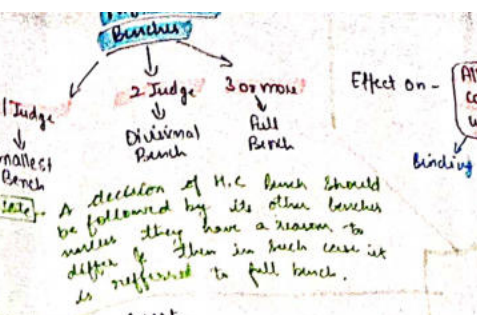 Benches
1 Judge
2 Judge
3 or more
Smallest Bench
Divisinal Bench
Full Bench
Effect on -
Binding
A decision of H.C Bench should
be followed by its other benches
unless they have a reason to
differ & then in such case it
is refferred to full bench.